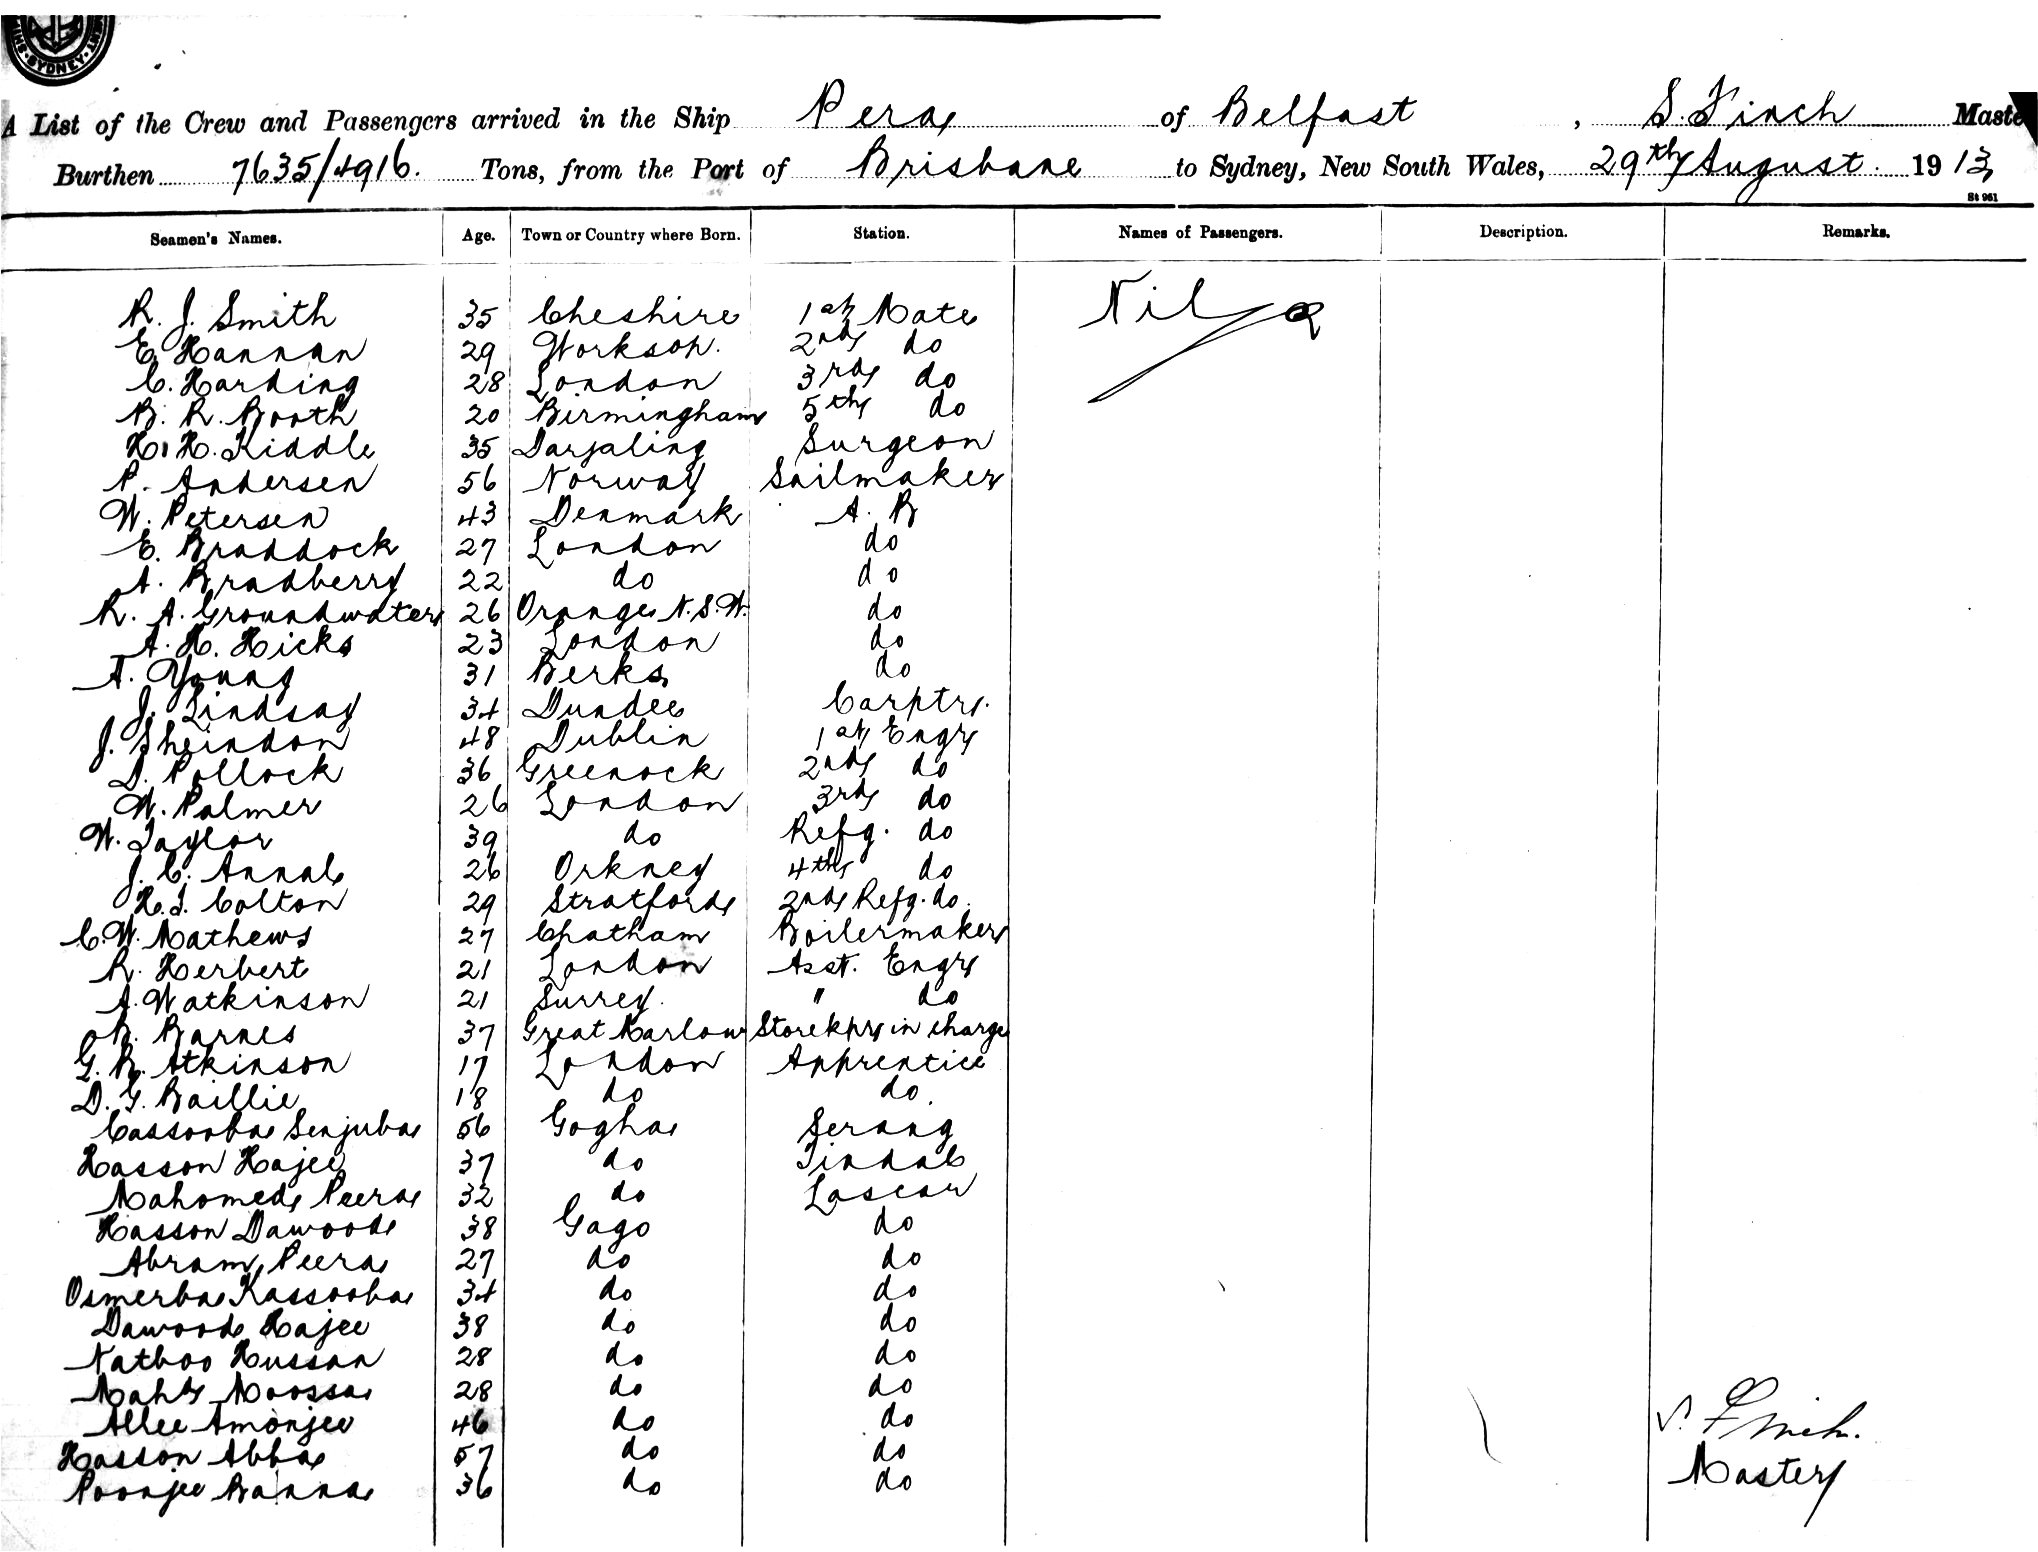 SYDNEY
A List of the Crew and Passengers arrived in the Ship Pera of Belfast, S. Finch Maste
Burthen 7635/4916. Tons, from the Port of Brisbane to Sydney, New South Wales, 29th August 1913
St 961
Seamen's Names. Age. Town or Country where Born. Station. Names of Passengers. Description. Remarks.
R. J. Smith 35 Cheshire 1st Mate Nil
E. Hannan 29 Worksop. 2nd do
C. Harding 28 London 3rd do
B. R. Booth 20 Birmingham 5th do
H. H. Kiddle 35 Darjaling Surgeon
P. Andersen 56 Norway Sailmaker
W. Petersen 43 Denmark A. B
E. Braddock 27 London do
A. Bradberry 22 do do
R. A. Groundwater 26 Orange N.S.W. do
A. H. Hicks 23 London do
A. Young 31 Berks do
J. Lindsay 34 Dundee Carptr.
J. Sheindon 48 Dublin 1st Engr
D. Pollock 36 Greenock 2nd do
W. Palmer 26 London 3rd do
W. Taylor 39 do Refg. do
J. C. Annal 26 Orkney 4th do
H. J. Colton 29 Stratford 2nd Refg. do.
C. W. Mathews 27 Chatham Boilermaker
R. Herbert 21 London Asst. Engr
A. Watkinson 21 Surrey. " do
B. Barnes 37 Great Marlow Storekpr in charge
G. R. Atkinson 17 London Apprentice
D. G. Baillie 18 do do.
Cassooba Senjuba 56 Gogha Serang
Hasson Hajee 37 do Tindal
Mahomed Peera 32 do Lascar
Hasson Dawood 38 Gago do
Abram Peera 27 do do
Osmerba Kassooba 34 do do
Dawood Hajee 38 do do
Nathoo Hussan 28 do do
Mahd Moossa 28 do do
Allee Amonjee 46 do do
S. Finch.
Hasson Abba 57 do do
Master
Poonjee Banna 36 do do